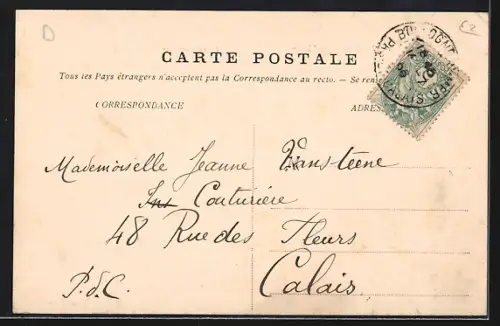 D
£2
CARTE POSTALE
Tous les Pays étrangers n'acceptent pas la Correspondance au recto. — Se ren
CORRESPONDANCE
ADRES
Mademoiselle Jeanne Vansteene
Couturière
48 Rue des Fleurs
P.d.C. Calais